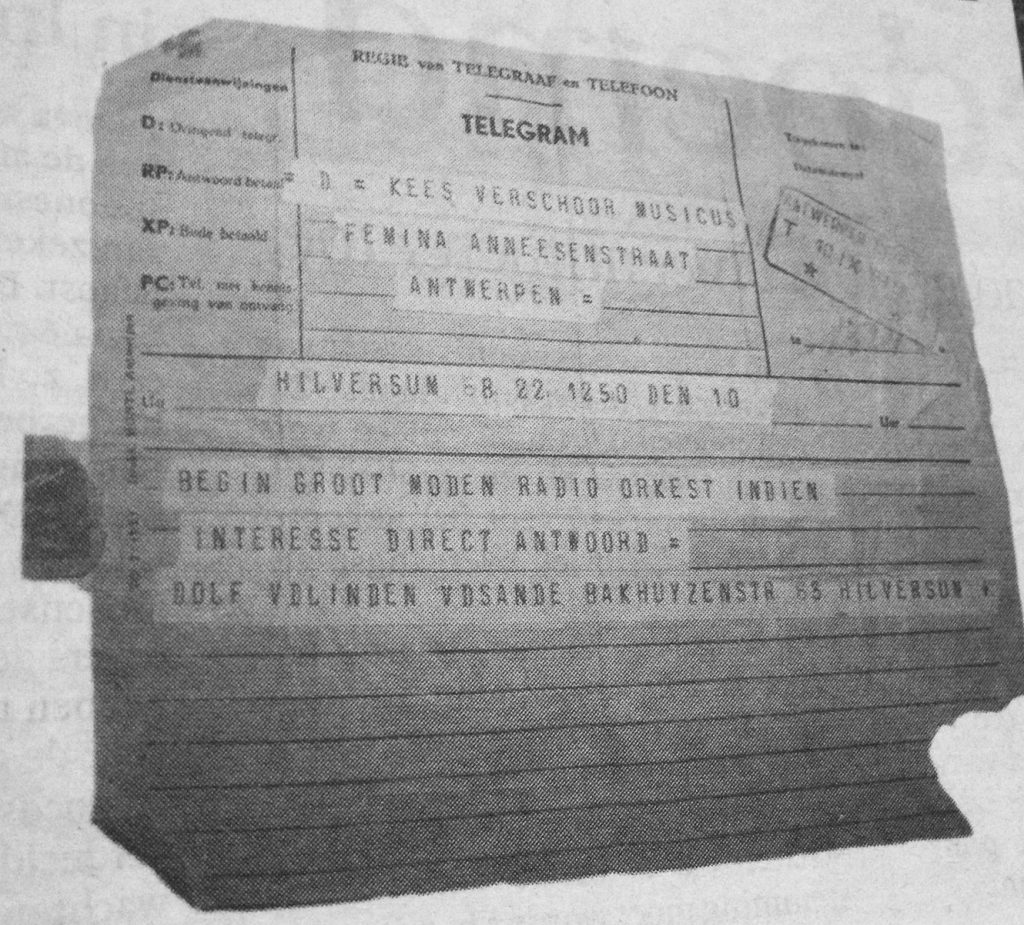 REGIE van TELEGRAAF en TELEFOON
TELEGRAM
Dienstaanwijzingen
D: Dringend telegr.
RP: Antwoord betaald
XP: Bode betaald
PC: Tel. met kennis-
geving van ontvangst
= D = KEES VERSCHOOR MUSICUS
FEMINA ANNEESENSTRAAT
ANTWERPEN =
ANTWERPEN
T
HILVERSUN 68 22 1250 DEN 10
Uur
BEGIN GROOT MODEN RADIO ORKEST INDIEN
INTERESSE DIRECT ANTWOORD =
DOLF VDLINDEN VDSANDE BAKHUYZENSTR 63 HILVERSUN +